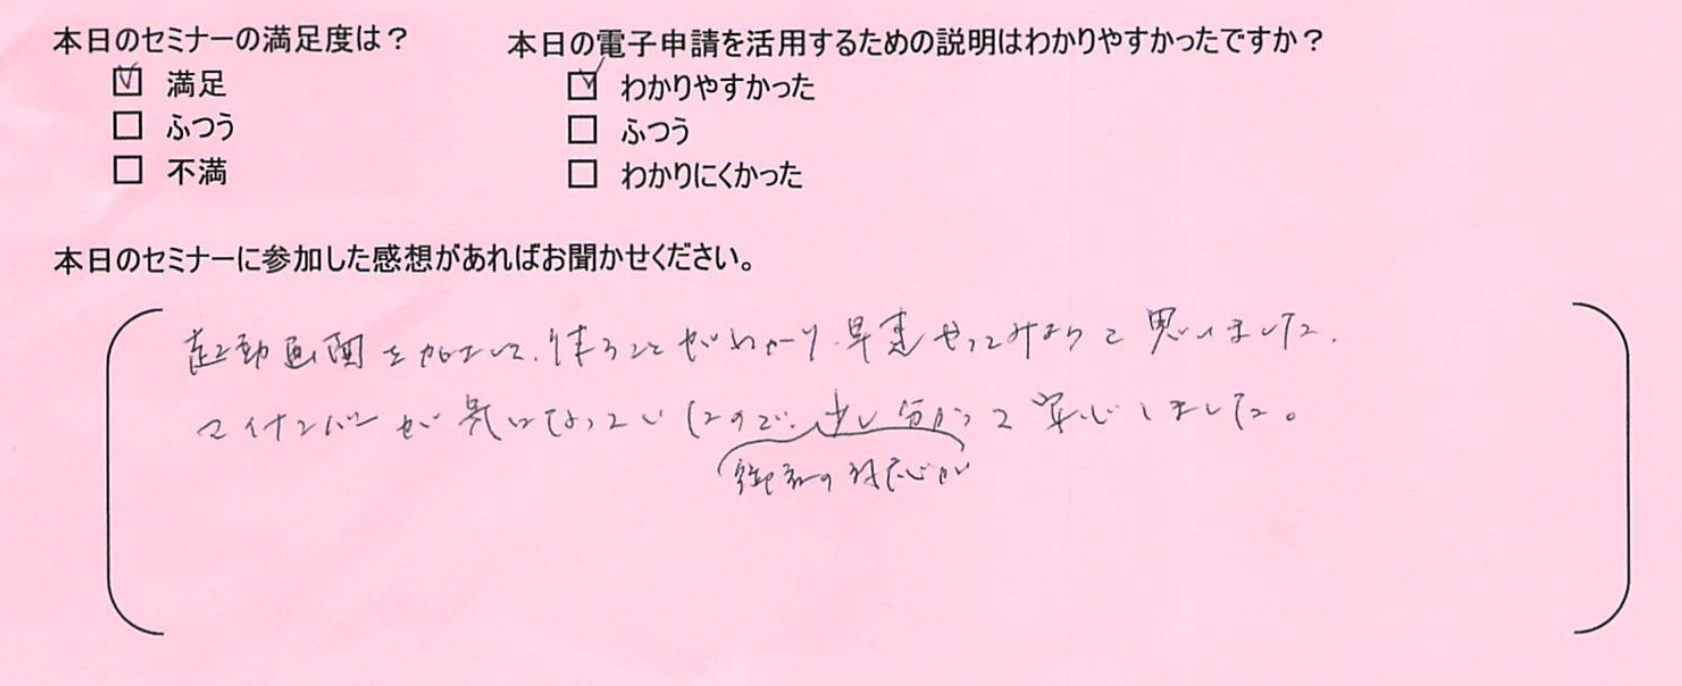 本日のセミナーの満足度は？ 本日の電子申請を活用するための説明はわかりやすかったですか？
☑ 満足 ☑ わかりやすかった
□ ふつう □ ふつう
□ 不満 □ わかりにくかった
本日のセミナーに参加した感想があればお聞かせください。
起動画面を 使うことがわかり、早速やってみようと思いました。
マイナンバーが気になっていたので、少し分かって安心しました。
御社の対応が